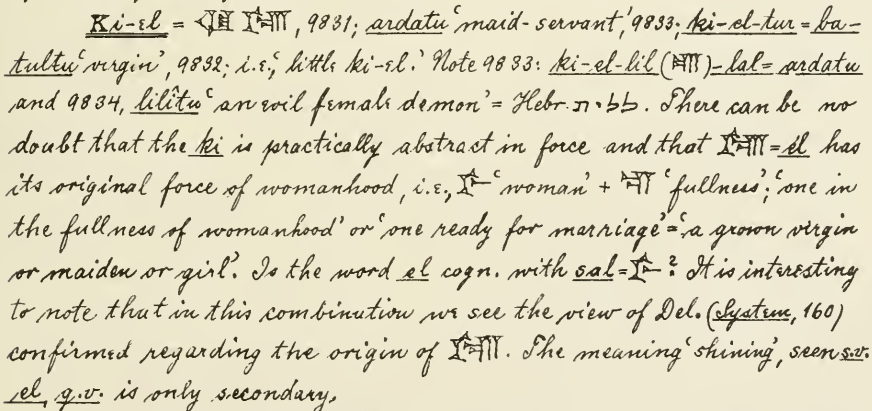 Ki-el = 𒆠 𒂖, 9831; ardatu ‘maid-servant’, 9833; ki-el-tur = ba-
tultu ‘virgin’, 9832; i.e., ‘little ki-el.’ Note 9833: ki-el-lil (𒆤)-lal = ardatu
and 9834, lilîtu ‘an evil female demon’ = Hebr. לילית. There can be no
doubt that the ki is practically abstract in force and that 𒂖 = él has
its original force of womanhood, i.e., 𒊩 ‘woman’ + 𒆤 ‘fullness’; ‘one in
the fullness of womanhood’ or ‘one ready for marriage’ = ‘a grown virgin
or maiden or girl’. Is the word el cogn. with sal = 𒊩? It is interesting
to note that in this combination we see the view of Del. (System, 160)
confirmed regarding the origin of 𒂖. The meaning ‘shining’, seen s.v.
el, q.v. is only secondary.